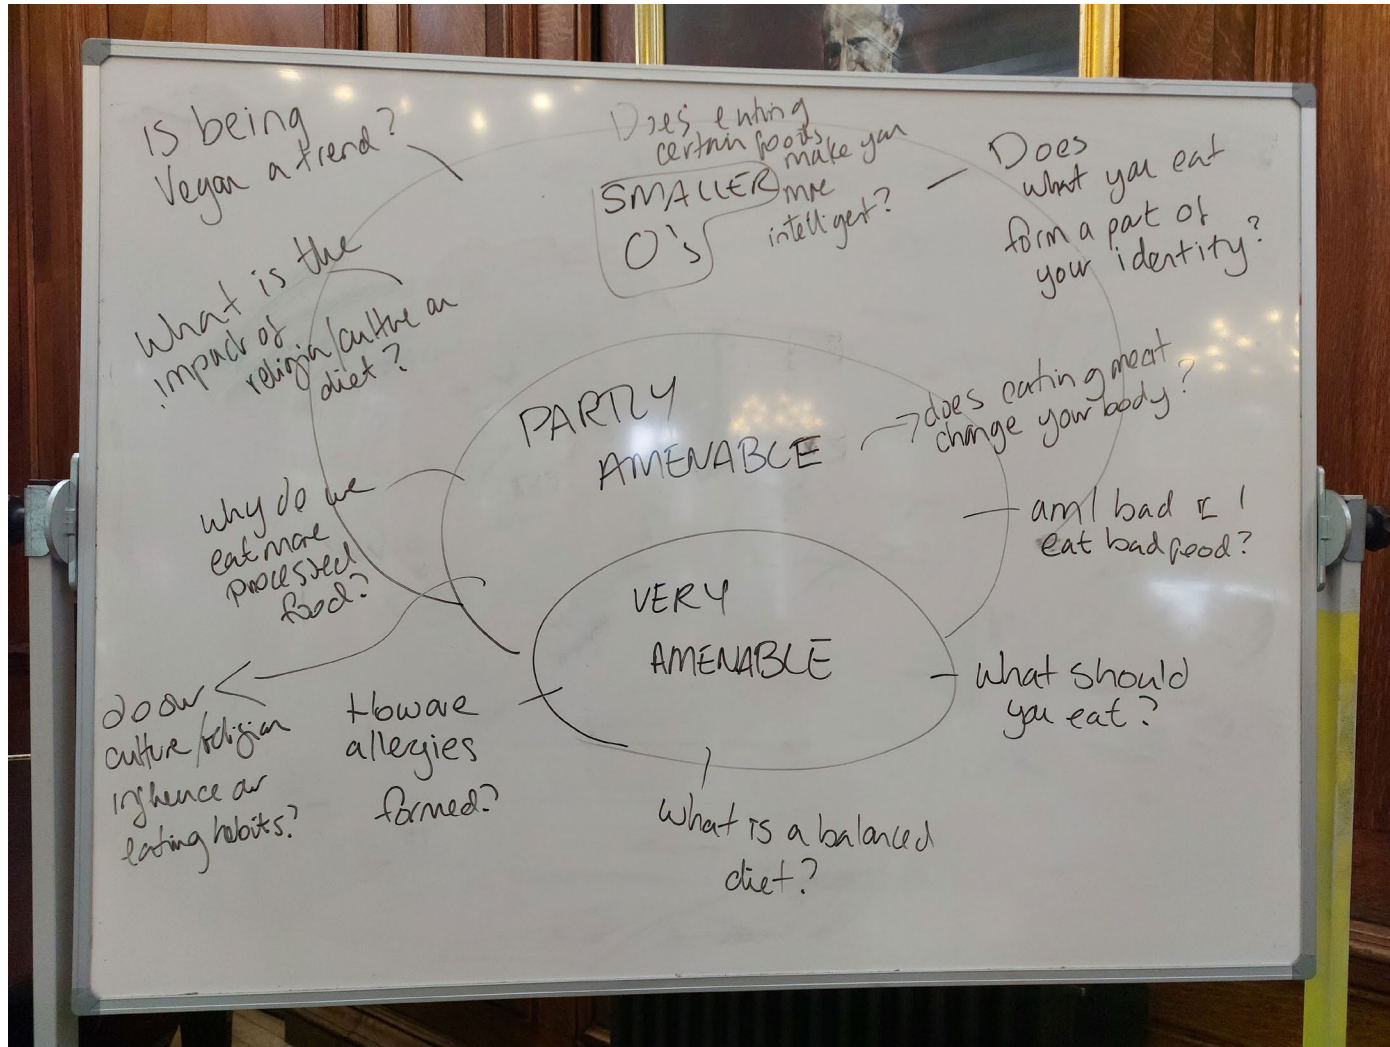 Is being
Vegan a trend?
Does eating
certain foods
make you
more
intelligent?
SMALLER
O's
Does
what you eat
form a part of
your identity?
What is the
impact of
religion/culture on
diet?
PARTLY
AMENABLE
does eating meat
change your body?
why do we
eat more
processed
food?
am I bad if I
eat bad food?
VERY
AMENABLE
do our
culture/religion
influence our
eating habits?
How are
allergies
formed?
What should
you eat?
What is a balanced
diet?